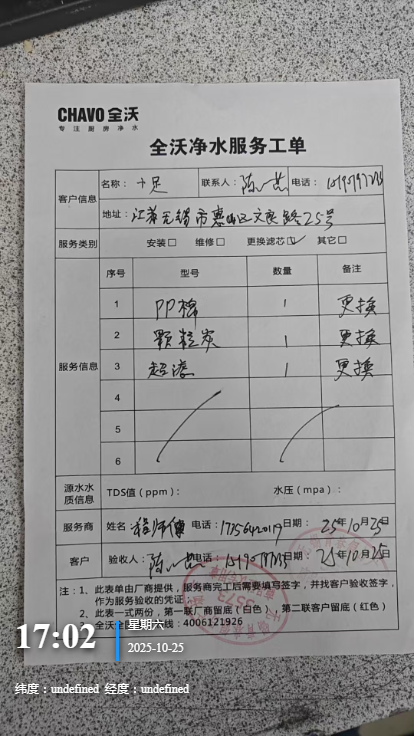 CHAVO 全沃
专注厨房净水
全沃净水服务工单
客户信息 名称：十足 联系人：陈 电话：
地址：江苏无锡市惠山区文良路25号
服务类别 安装□ 维修□ 更换滤芯☑ 其它□
服务信息 序号 型号 数量 备注
1 PP棉 1 更换
2 颗粒炭 1 更换
3 超滤 1 更换
4
5
6
源水水质信息 TDS值（ppm）： 水压（mpa）：
服务商 姓名 程师傅 电话： 日期：25年10月25日
客户 验收人：陈 电话： 日期：25年10月25日
注：1、此表单由厂商提供，服务商完工后需要填写签字，并找客户验收签字，
作为服务验收的凭证
2、此表一式两份，第一联厂商留底（白色），第二联客户留底（红色）
3、全沃全 线：4006121926
17:02
星期六
2025-10-25
纬度：undefined 经度：undefined